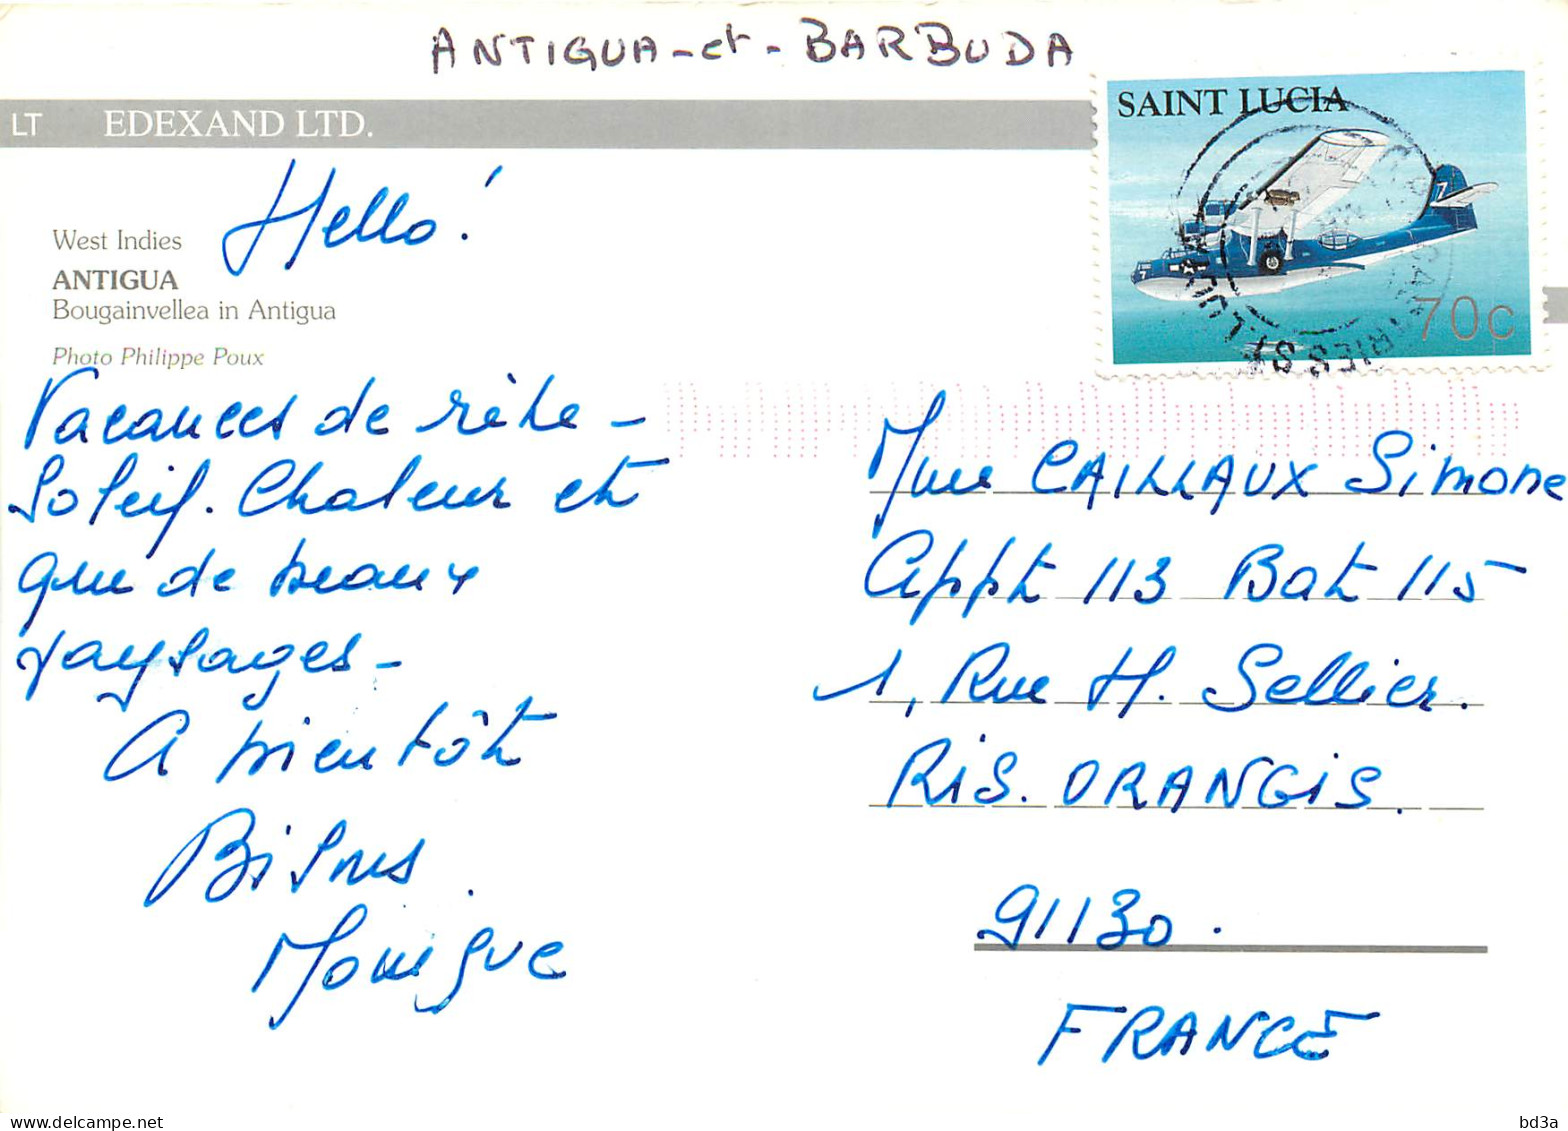 ANTIGUA-et-BARBUDA
LT EDEXAND LTD.
SAINT LUCIA
70c
7
7
Hello!
West Indies
ANTIGUA
Bougainvellea in Antigua
Photo Philippe Poux
Vacances de rêve -
Soleil. Chaleur et
que de beaux
paysages -
A bientôt
Bisous.
Monique
Mme CAILLAUX Simone
Appt 113 Bat 115
1, Rue H. Sellier.
RIS. ORANGIS.
91130.
FRANCE
www.delcampe.net
bd3a